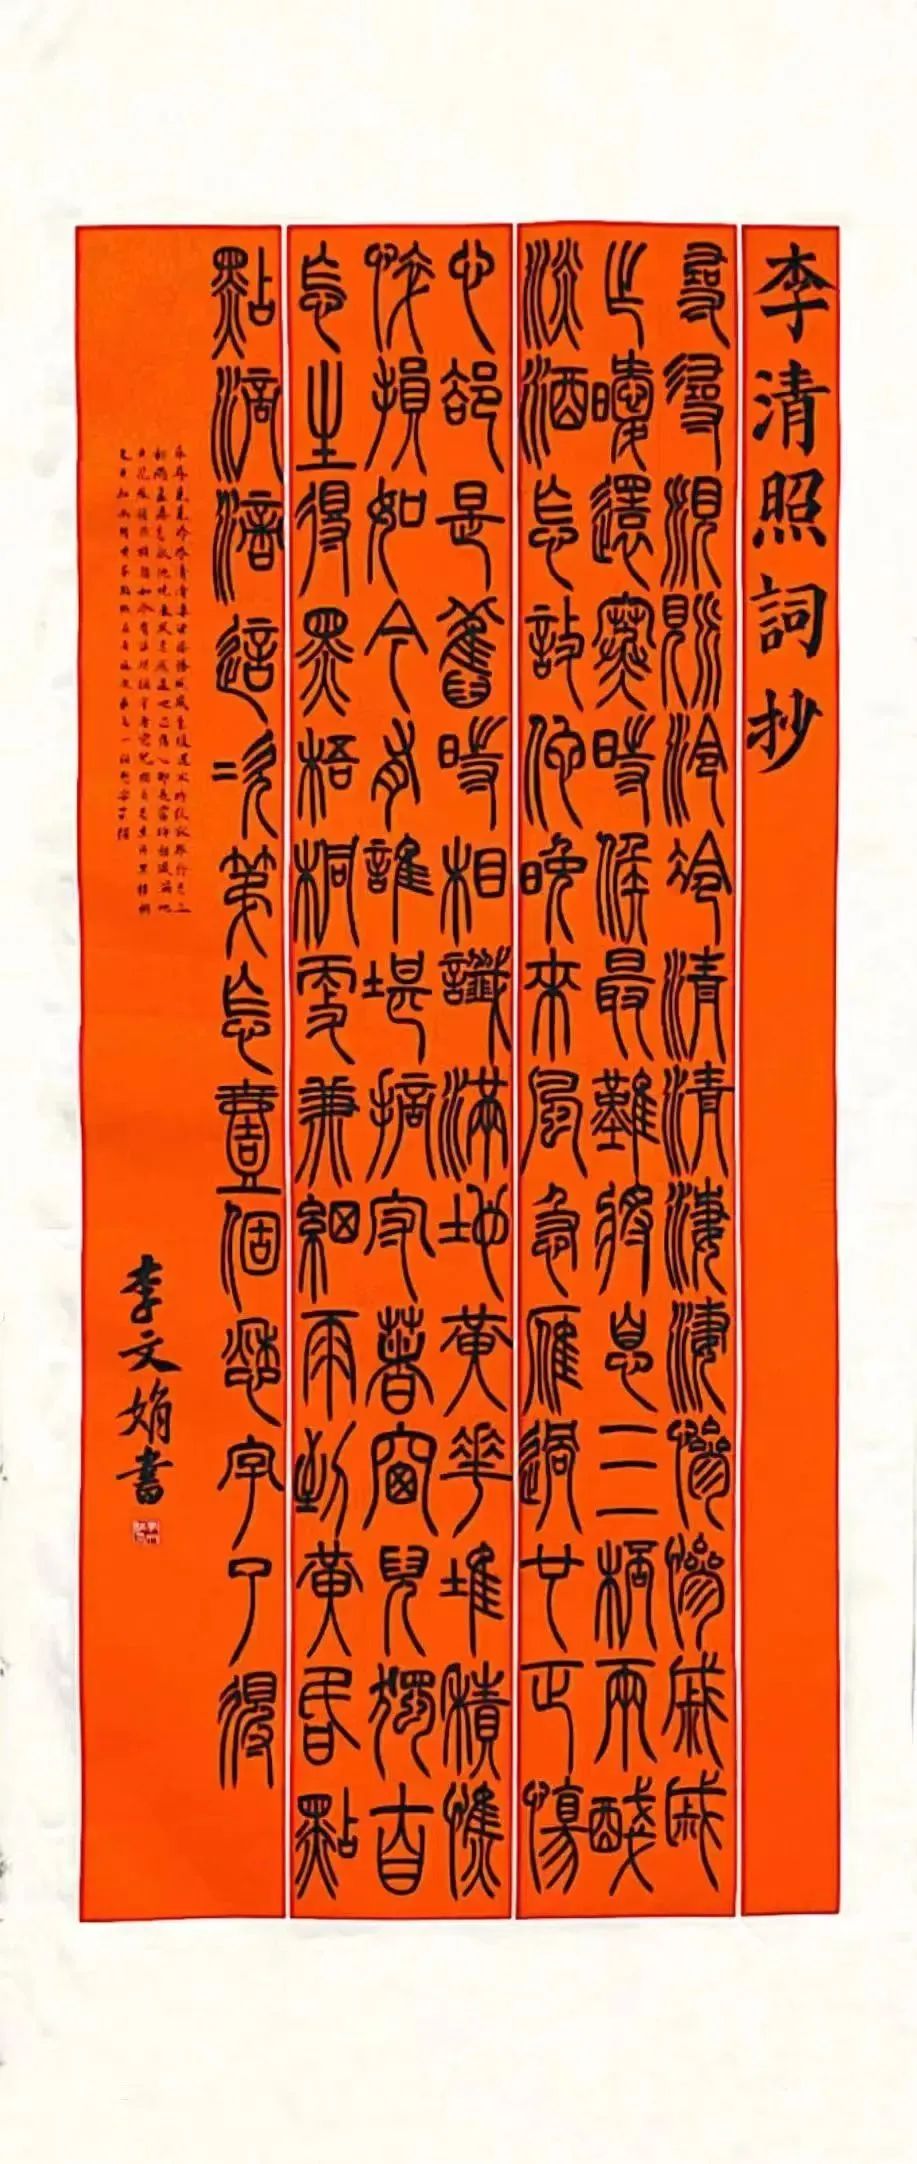 李清照詞抄
尋尋覓覓冷冷清清淒淒慘慘戚戚
乍暖還寒時候最難將息三杯兩醆
淡酒怎敵他晚來風急雁過也正傷
心卻是舊時相識滿地黃華堆積憔
悴損如今有誰堪摘守著窗兒獨自
怎生得黑梧桐更兼細雨到黃昏點
點滴滴這次第怎壹個愁字了得
李文娟書